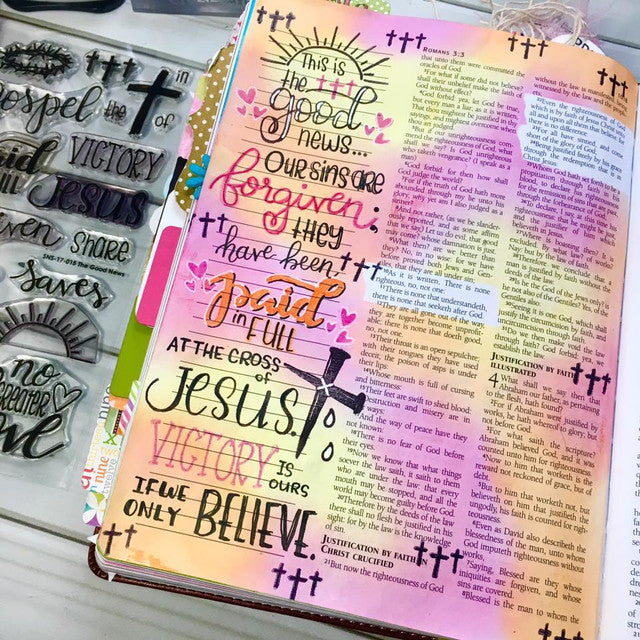 in
Gospel the
of
VICTORY
Jesus
SHARE
SNS-17-018 The Good News
Saves
no
GREATER
love
nine
This is
the
good
news...
OUR SINS ARE
forgiven;
THEY
have been
paid
in FULL
AT THE CROSS
of
JESUS.
VICTORY IS
OURS
IF WE
ONLY BELIEVE.
ROMANS 3:3
that unto them were committed the
oracles of God.
3For what if some did not believe?
shall their unbelief make the faith of
God without effect?
4God forbid: yea, let God be true,
but every man a liar; as it is written,
That thou mightest be justified in thy
sayings, and mightest overcome when
thou art judged.
5But if our unrighteousness com-
mend the righteousness of God, what
shall we say? Is God unrighteous
who taketh vengeance? (I speak as a
man)
6God forbid: for then how shall
God judge the world?
7For if the truth of God hath more
abounded through my lie unto his
glory; why yet am I also judged as a
sinner?
8And not rather, (as we be slander-
ously reported, and as some affirm
that we say,) Let us do evil, that good
may come? whose damnation is just.
9What then? are we better than
they? No, in no wise: for we have
before proved both Jews and Gen-
tiles, that they are all under sin;
10As it is written, There is none
righteous, no, not one:
11There is none that understandeth,
there is none that seeketh after God.
12They are all gone out of the way,
they are together become unprofit-
able; there is none that doeth good,
no, not one.
13Their throat is an open sepulchre;
with their tongues they have used
deceit; the poison of asps is under
their lips:
14Whose mouth is full of cursing
and bitterness:
15Their feet are swift to shed blood:
16Destruction and misery are in
their ways:
17And the way of peace have they
not known:
18There is no fear of God before
their eyes.
19Now we know that what things
soever the law saith, it saith to them
who are under the law: that every
mouth may be stopped, and all the
world may become guilty before God.
20Therefore by the deeds of the law
there shall no flesh be justified in his
sight: for by the law is the knowledge
of sin.
JUSTIFICATION BY FAITH IN
CHRIST CRUCIFIED
21But now the righteousness of God
without the law is manifested, being
witnessed by the law and the prophets;
22Even the righteousness of God
which is by faith of Jesus Christ unto
all and upon all them that believe: for
there is no difference:
23For all have sinned, and come
short of the glory of God;
24Being justified freely by his grace
through the redemption that is in
Christ Jesus:
25Whom God hath set forth to be a
propitiation through faith in his
blood, to declare his righteousness
for the remission of sins that are past,
through the forbearance of God;
26To declare, I say, at this time his
righteousness: that he might be just,
and the justifier of him which
believeth in Jesus.
27Where is boasting then? It is
excluded. By what law? of works?
Nay: but by the law of faith.
28Therefore we conclude that a
man is justified by faith without the
deeds of the law.
29Is he the God of the Jews only? is
he not also of the Gentiles? Yes, of the
Gentiles also:
30Seeing it is one God, which shall
justify the circumcision by faith, and
uncircumcision through faith.
31Do we then make void the law
through faith? God forbid: yea, we
establish the law.
JUSTIFICATION BY FAITH
ILLUSTRATED
4 What shall we say then that
Abraham our father, as pertaining
to the flesh, hath found?
2For if Abraham were justified by
works, he hath whereof to glory; but
not before God.
3For what saith the scripture?
Abraham believed God, and it was
counted unto him for righteousness.
4Now to him that worketh is the
reward not reckoned of grace, but of
debt.
5But to him that worketh not, but
believeth on him that justifieth the
ungodly, his faith is counted for righ-
teousness.
6Even as David also describeth the
blessedness of the man, unto whom
God imputeth righteousness without
works,
7Saying, Blessed are they whose
iniquities are forgiven, and whose
sins are covered.
8Blessed is the man to whom the